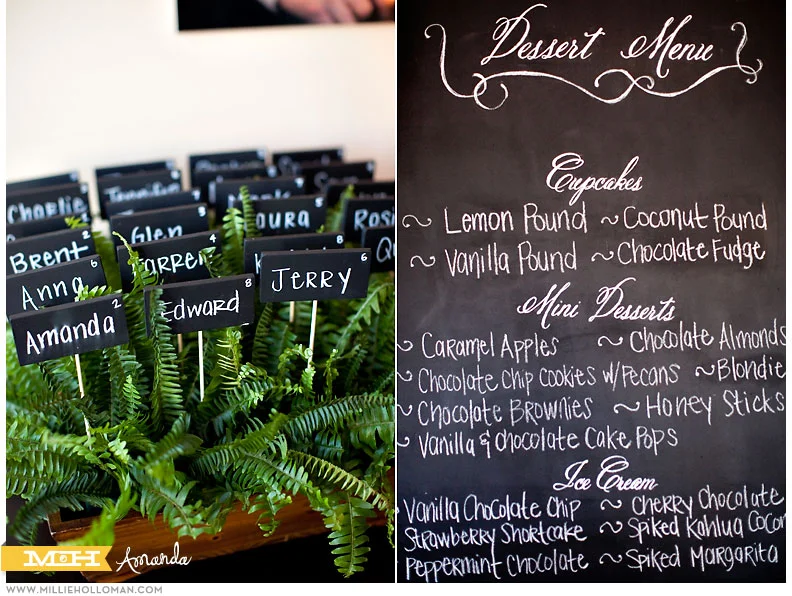 Charlie
Jennifer
Glen
Laura
Brent 2
Darren 4
Anna 6
Jerry 6
Edward 8
Amanda 2
Dessert Menu
Cupcakes
~ Lemon Pound ~ Coconut Pound
~ Vanilla Pound ~ Chocolate Fudge
Mini Desserts
~ Caramel Apples ~ Chocolate Almonds
~ Chocolate Chip Cookies w/Pecans ~ Blondie
~ Chocolate Brownies ~ Honey Sticks
~ Vanilla & Chocolate Cake Pops
Ice Cream
Vanilla Chocolate Chip ~ Cherry Chocolate
Strawberry Shortcake ~ Spiked Kahlua Cocon
Peppermint Chocolate ~ Spiked Margarita
M&H Amanda
WWW.MILLIEHOLLOMAN.COM